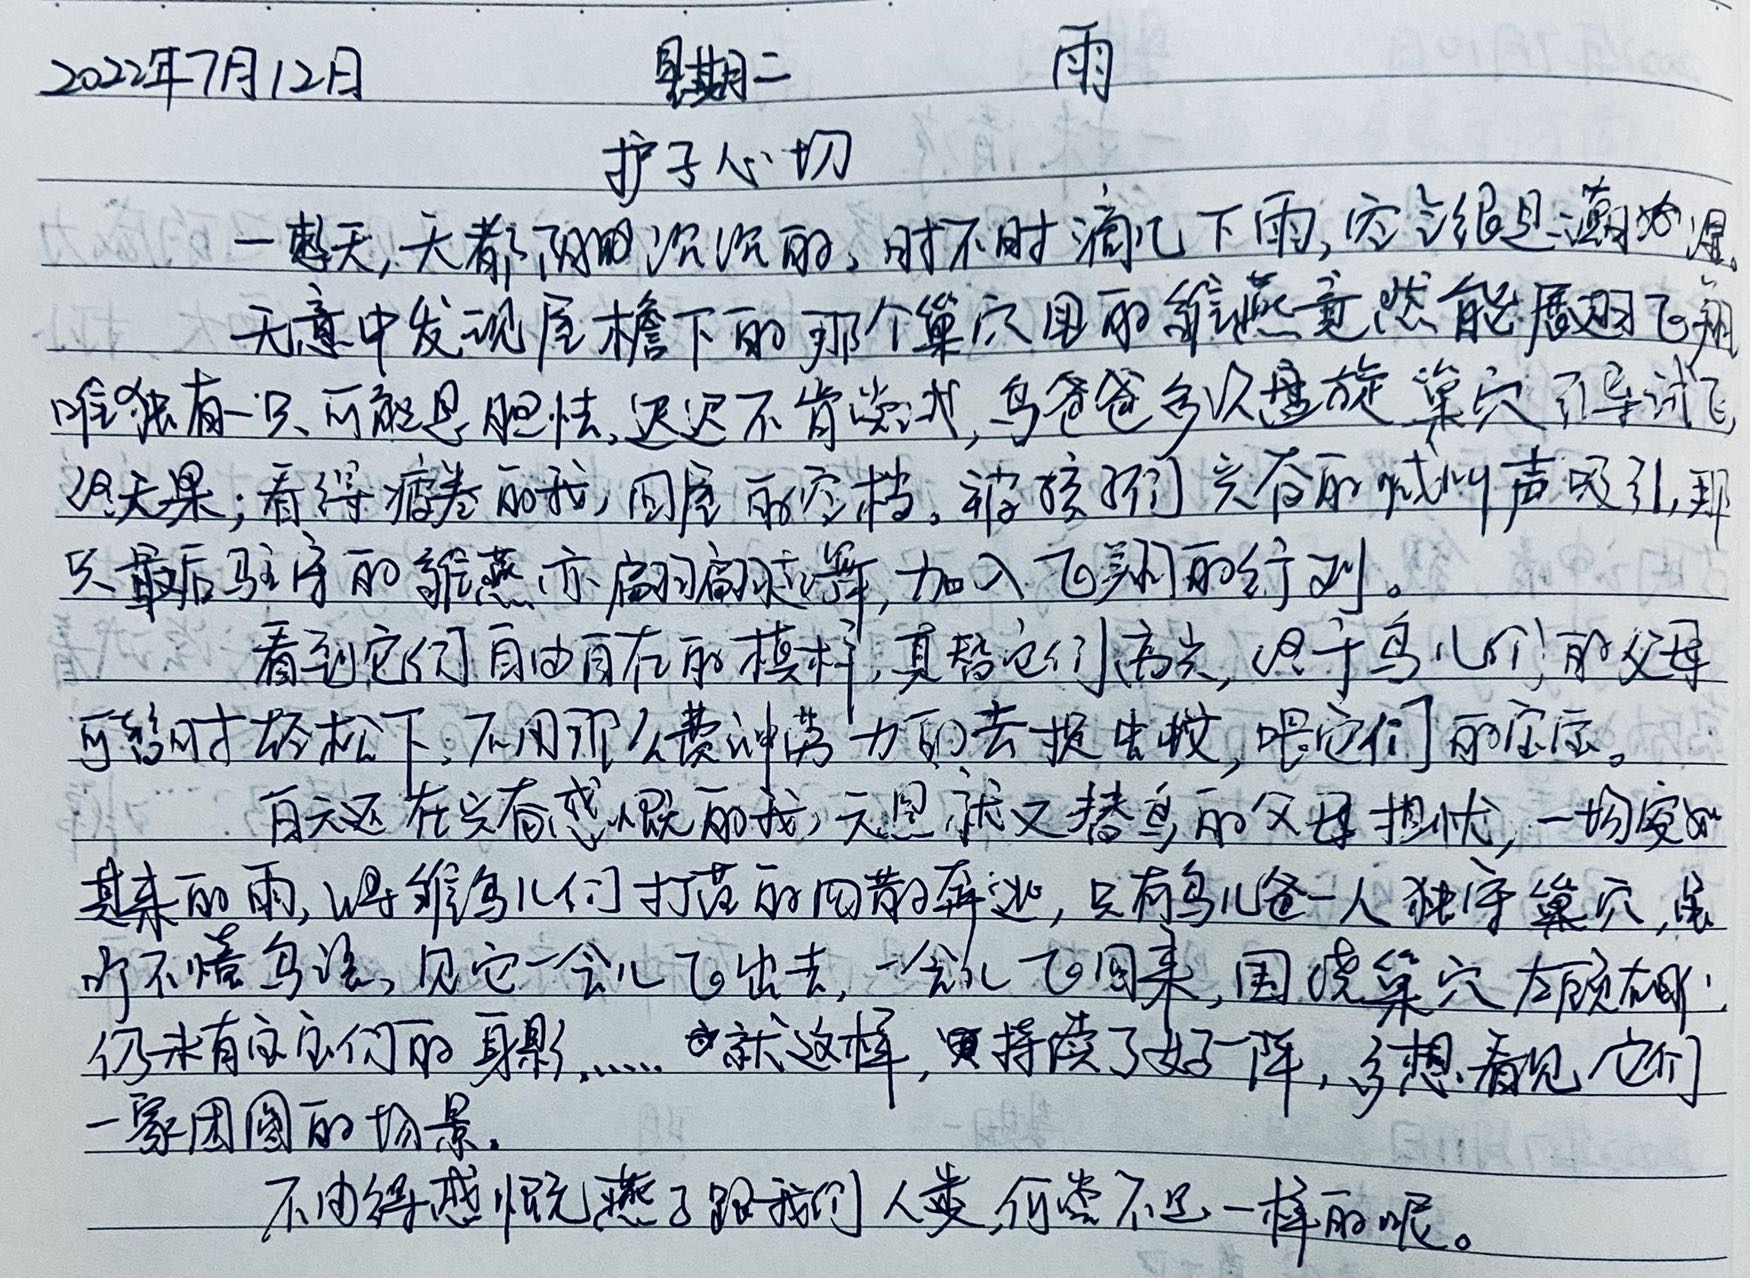 2022年7月12日 星期二 雨
护子心切
一整天,天都阴沉沉的,时不时滴几下雨,空气很是潮湿。
无意中发现屋檐下的那个巢穴里的雏燕竟然能展翅飞翔
唯独有一只、可能是胆怯,迟迟不肯尝试,鸟爸爸多次盘旋巢穴引导试飞
没结果;看得疲惫的我,回屋的空档。被孩子们兴奋的喊叫声吸引,那
只最后驻守的雏燕亦翩翩起舞,加入飞翔的行列。
看到它们自由自在的模样,真替它们高兴,终于鸟儿们的父母
可暂时轻松下,不用那么费神劳力的去捉虫蚊,喂它们的宝宝。
白天还在兴奋感慨的我,无思就又替鸟的父母担忧,一场突如
其来的雨,将雏鸟儿们打落的四散奔逃,只有鸟儿爸一人独守巢穴,虽
听不懂鸟语,见它一会儿飞出去,一会儿飞回来,围绕巢穴左顾右盼,
仍未有宝宝们的身影…… 就这样,持续了好一阵,多想看见它们
一家团圆的场景。
不由得感慨燕子跟我们人类,何尝不是一样的呢。